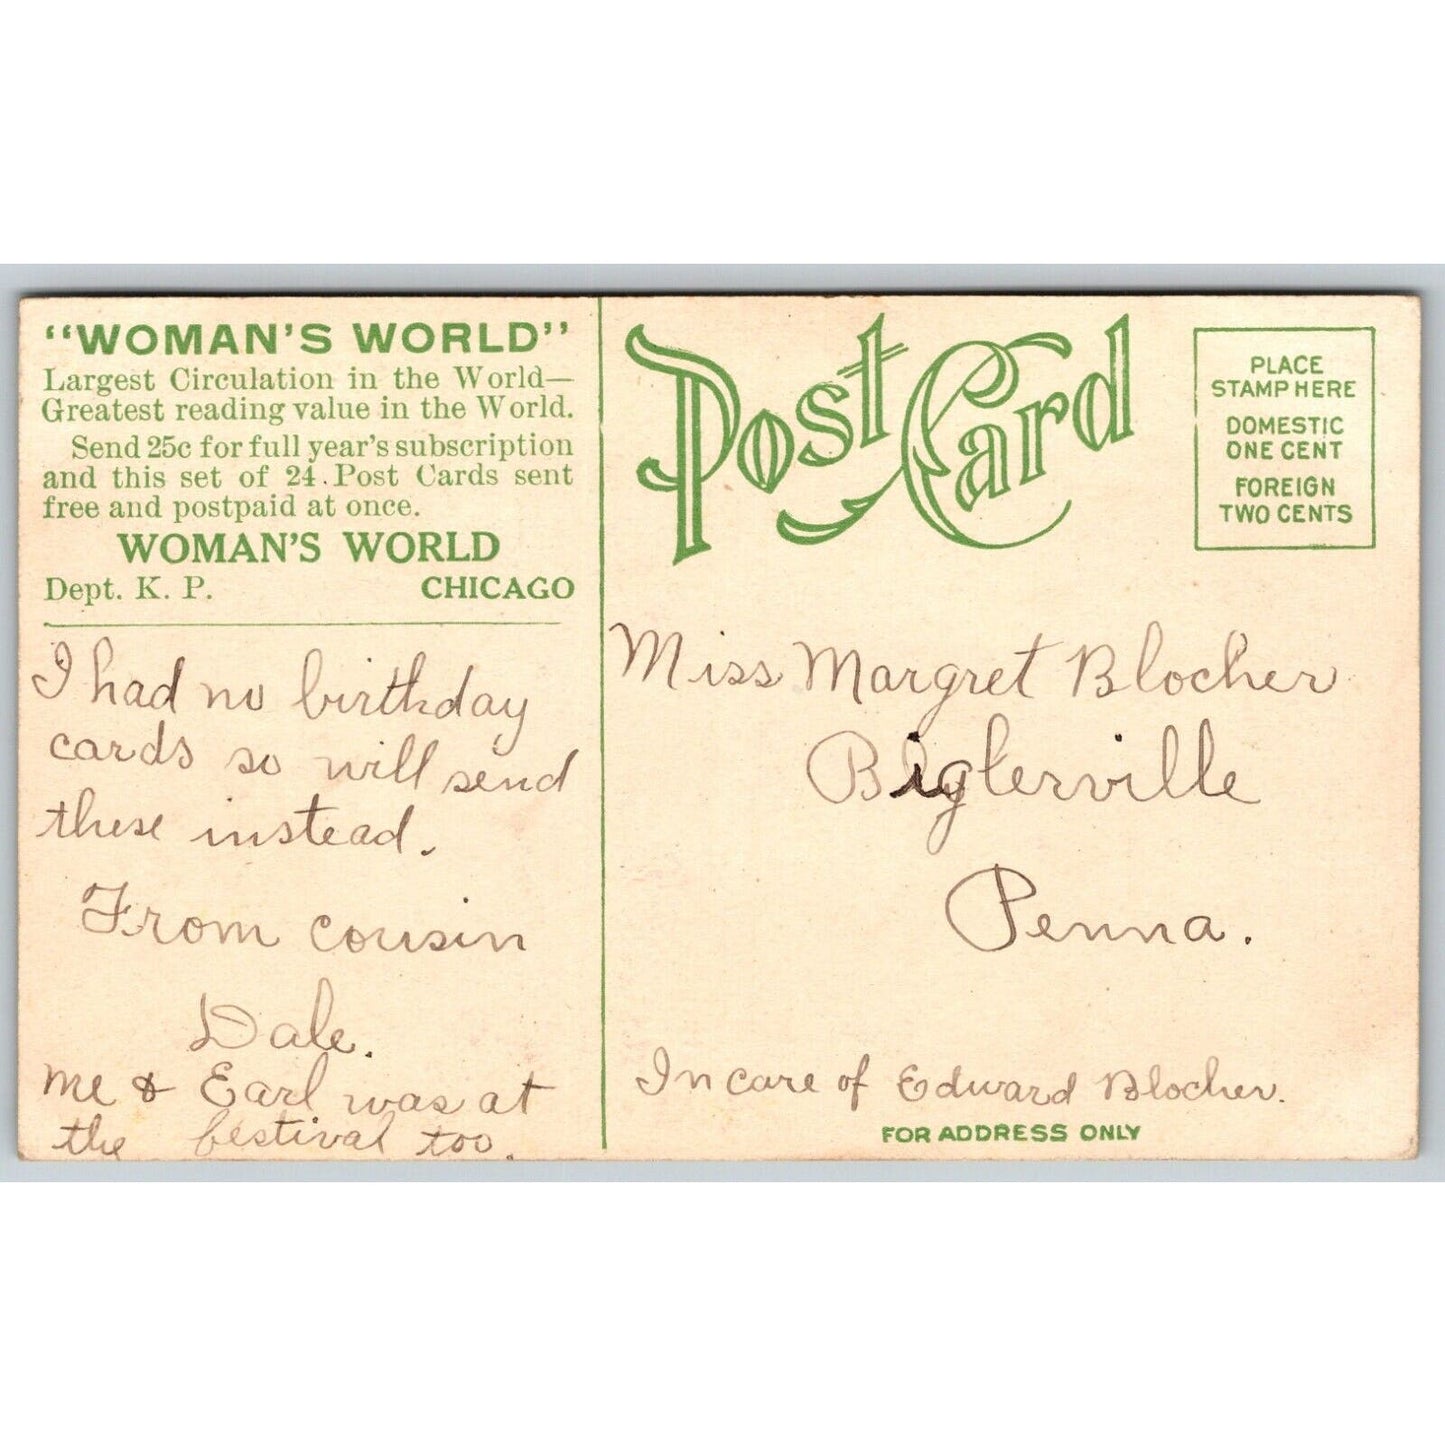 "WOMAN'S WORLD"
Largest Circulation in the World—
Greatest reading value in the World.
Send 25c for full year's subscription
and this set of 24 Post Cards sent
free and postpaid at once.
WOMAN'S WORLD
Dept. K. P. CHICAGO
I had no birthday
cards so will send
these instead.
From cousin
Dale.
Me & Earl was at
the festival too.
Post Card
PLACE
STAMP HERE
DOMESTIC
ONE CENT
FOREIGN
TWO CENTS
Miss Margret Blocher
Biglerville
Penna.
In care of Edward Blocher.
FOR ADDRESS ONLY